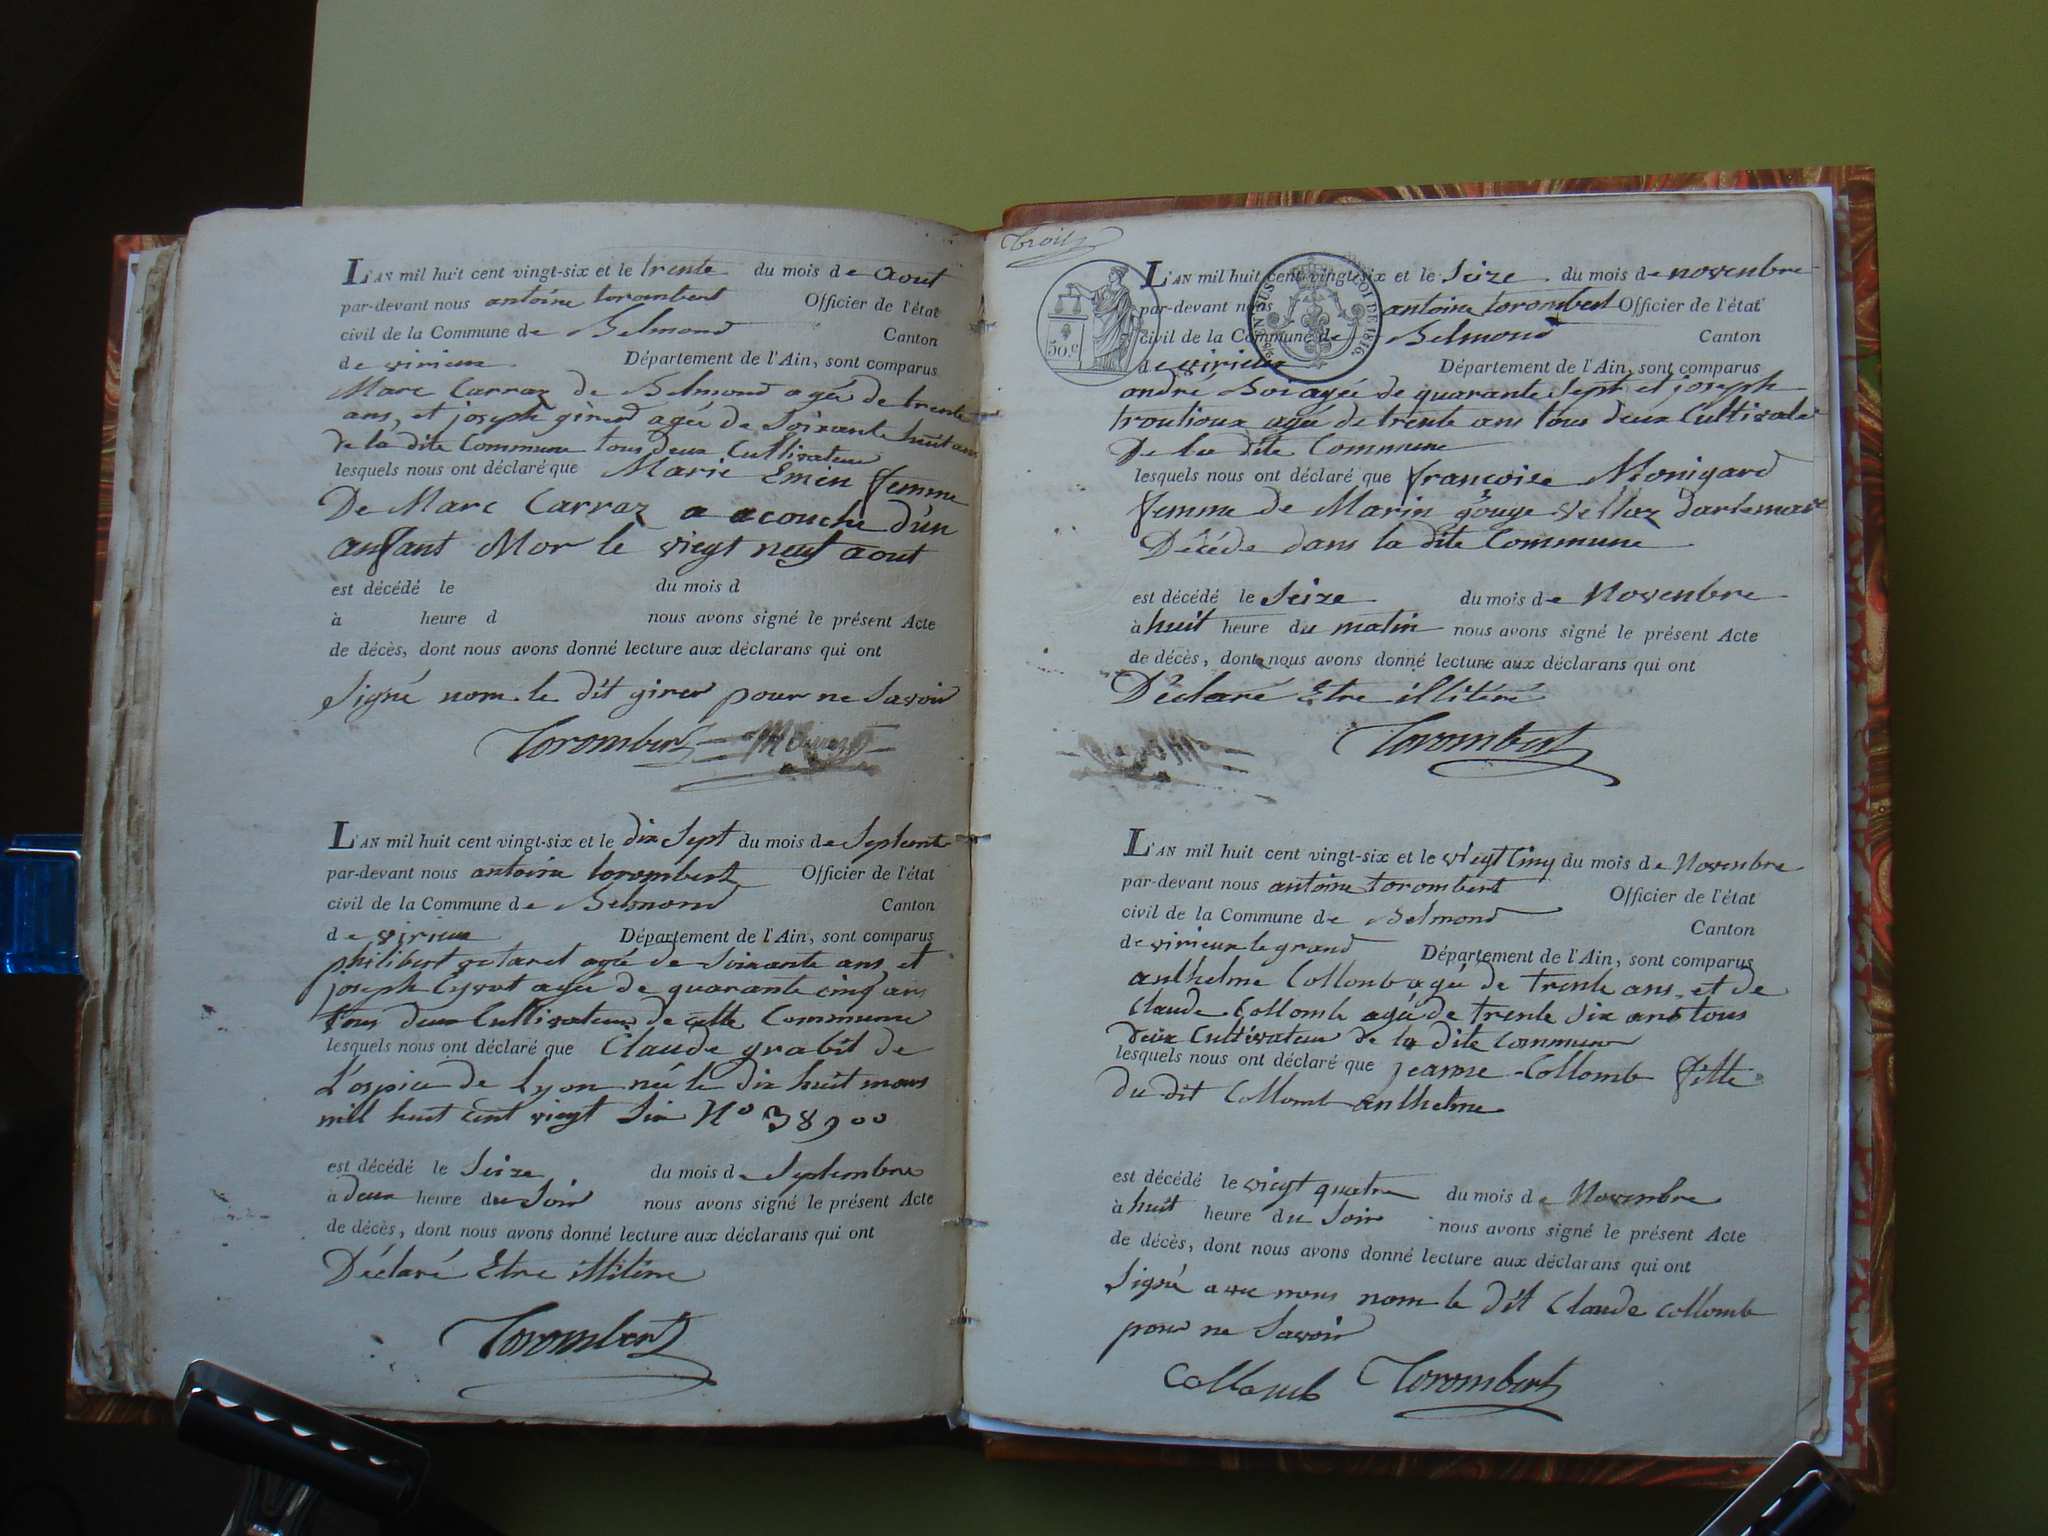 L'AN mil huit cent vingt-six et le trente du mois de aout
par-devant nous antoine torombert Officier de l'état
civil de la Commune de Belmond Canton
de virieux Département de l'Ain, sont comparus
Marc Carraz de Belmond agée de trente
ans, et joseph girerd agée de Soixante huit ans
de la dite Commune tous deux Cultivateur
lesquels nous ont déclaré que Marie Emin femme
De Marc Carraz a acouche d'un
anfant Mor le viegt neuf aout
est décédé le du mois d
à heure d nous avons signé le présent Acte
de décès, dont nous avons donné lecture aux déclarans qui ont
Signé nom le dit girer pour ne Savoir
Torombert
L'AN mil huit cent vingt-six et le dix Sept du mois de Septembre
par-devant nous antoine torombert Officier de l'état
civil de la Commune de Belmond Canton
de virieux Département de l'Ain, sont comparus
philibert agée de Soixante ans et
joseph Cyvot agée de quarante cinq ans
tous deux Cultivateur de cette Commune
lesquels nous ont déclaré que Claude grabit de
L'ospice de Lyon née le dix huit mars
mil huit cent viegt Six No 38900
est décédé le Seize du mois de Septembre
à deux heure du Soir nous avons signé le présent Acte
de décès, dont nous avons donné lecture aux déclarans qui ont
Déclaré Etre illitére
Torombert
Trois
50.c
L'AN mil huit cent vingt-six et le Seize du mois de novenbre
par-devant nous antoine torombert Officier de l'état
civil de la Commune de Belmond Canton
de virieux Département de l'Ain, sont comparus
andré Boi agée de quarante Sept et joseph
troulioux agée de trente ans tous deux Cultivateur
De la dite Commune
lesquels nous ont déclaré que françoise Monigard
femme de Marin gouge vellaz dartemare
Décéde dans la dite Commune
est décédé le Seize du mois de Novenbre
à huit heure du matin nous avons signé le présent Acte
de décès, dont nous avons donné lecture aux déclarans qui ont
Déclaré Etre illitéré
Torombert
L'AN mil huit cent vingt-six et le viegt Cinq du mois de Novenbre
par-devant nous antoine torombert Officier de l'état
civil de la Commune de Belmond Canton
de virieux le grand Département de l'Ain, sont comparus
anthelme Collomb agé de trente ans, et de
Claude Collomb agé de trente Six ans tous
deux Cultivateur de la dite Commune
lesquels nous ont déclaré que jeanne Collomb fille
du dit Collomb anthelme
est décédé le viegt quatre du mois de Novenbre
à huit heure du Soir nous avons signé le présent Acte
de décès, dont nous avons donné lecture aux déclarans qui ont
Signé avec nous nom le dit Claude Collomb
pour ne Savoir
Collomb Torombert